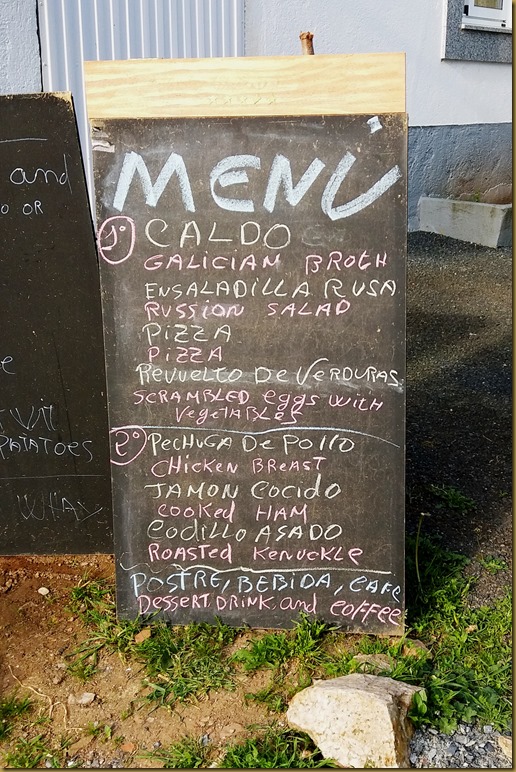 and
O OR
PATATOES
MENU
1º CALDO
GALICIAN BROTH
ENSALADILLA RUSA
RUSSION SALAD
PIZZA
PIZZA
REVUELTO DE VERDURAS
SCRAMBLED eggs WITH
VEGETABLES
2º PECHUGA DE POLLO
CHICKEN BREAST
JAMON COCIDO
COOKED HAM
CODILLO ASADO
ROASTED KENUCKLE
POSTRE, BEBIDA, CAFE
DESSERT, DRINK and COFFEE